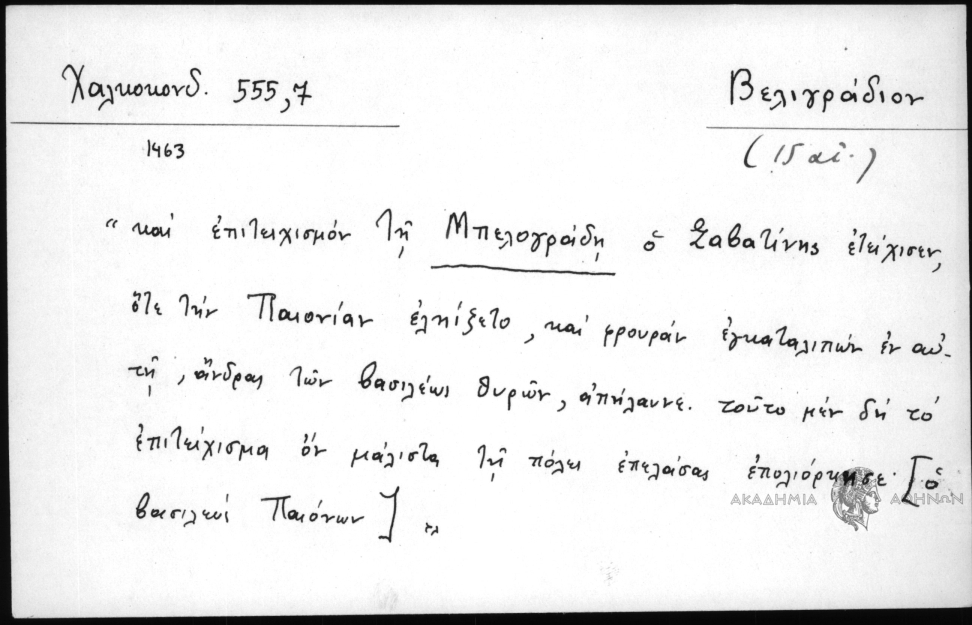 Χαλκοκονδ. 555,7
Βελιγράδιον
1463
(15 αἰ.)
“ καί ἐπιτειχισμόν τῇ Μπελογράδῃ ὁ Ζαβατίνης ἐτείχισεν,
ὅτε τήν Παιονίαν ἐληίζετο, καί φρουράν ἐγκαταλιπών ἐν αὐ-
τῇ, ἄνδρας τῶν βασιλέως θυρῶν, ἀπήλαυνε. τοῦτο μέν δή τό
ἐπιτείχισμα ὄν μάλιστα τῇ πόλει ἐπελάσας ἐπολιόρκησε [ὁ
βασιλεύς Παιόνων] „
ΑΚΑΔΗΜΙΑ ΑΘΗΝΩΝ